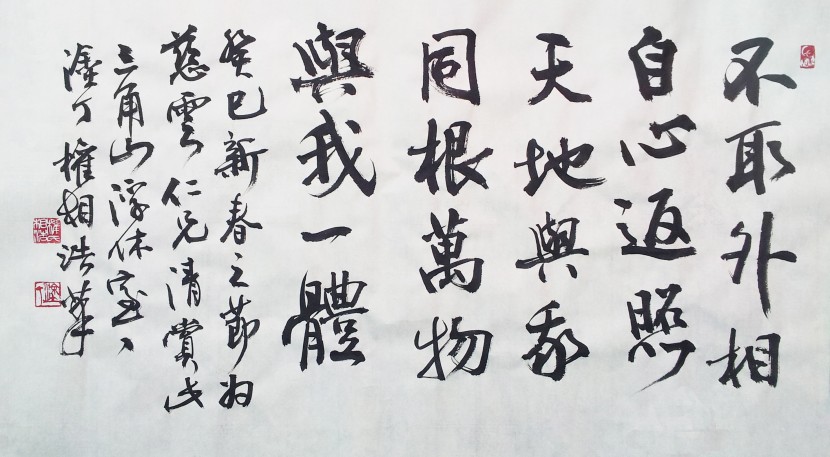 不取外相
自心返照
天地與我
同根萬物
與我一體
癸巳新春之節為
慈雲仁兄清賞此
三角山浮休室
塗丁權相浩筆